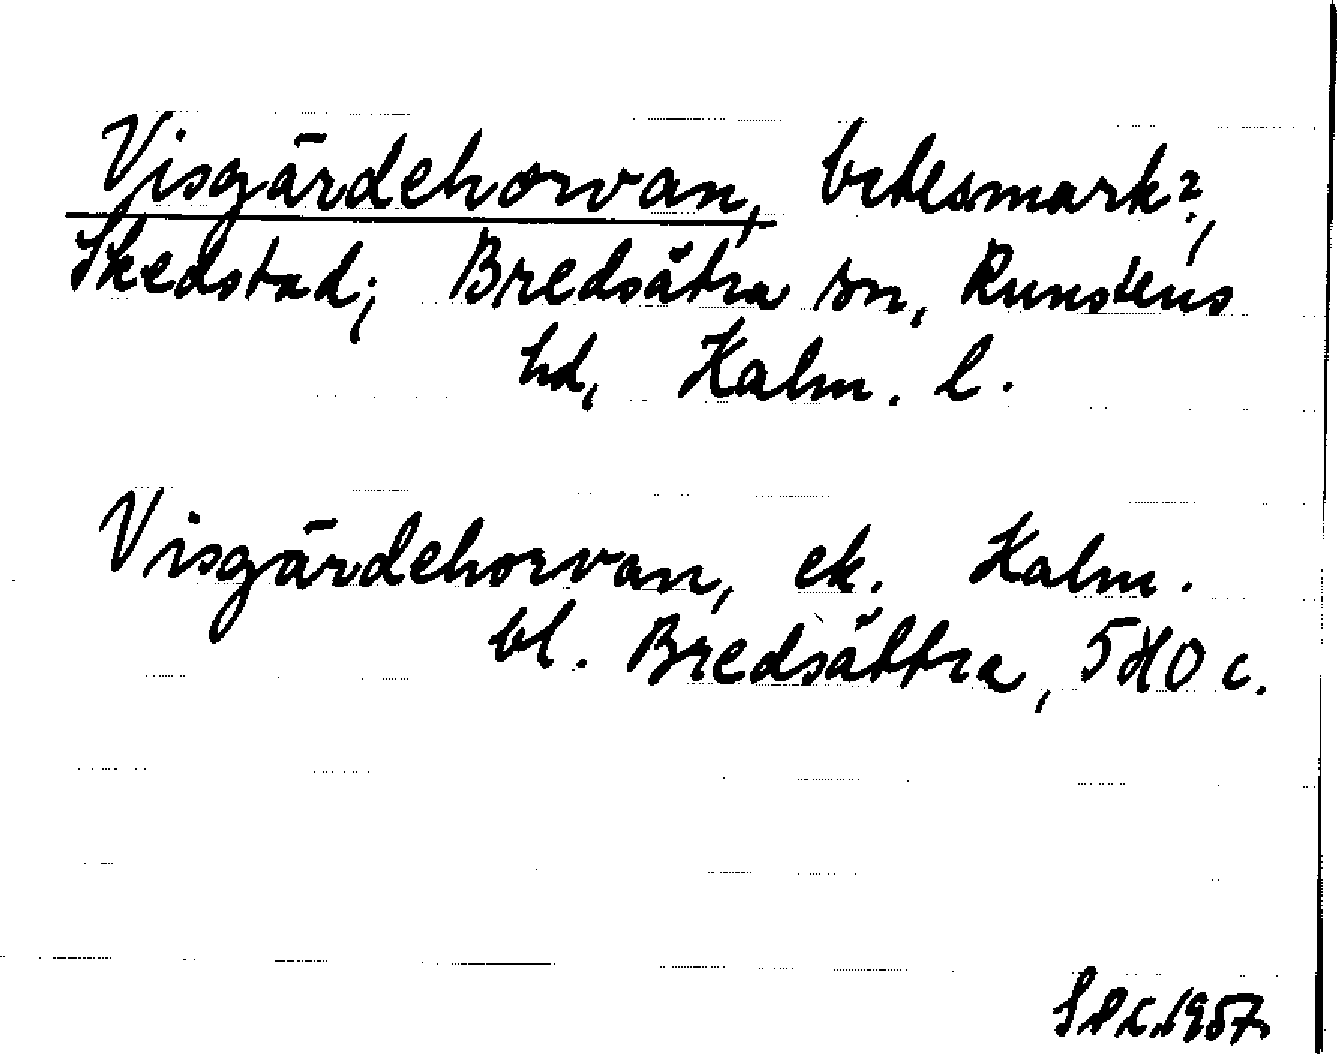 Visgärdehorvan, betesmark?,
Skedstad; Bredsätra sn, Runstens
hd, Kalm. l.
Visgärdehorvan, ek. Kalm.
bl. Bredsättra, 5H0 c.
1957